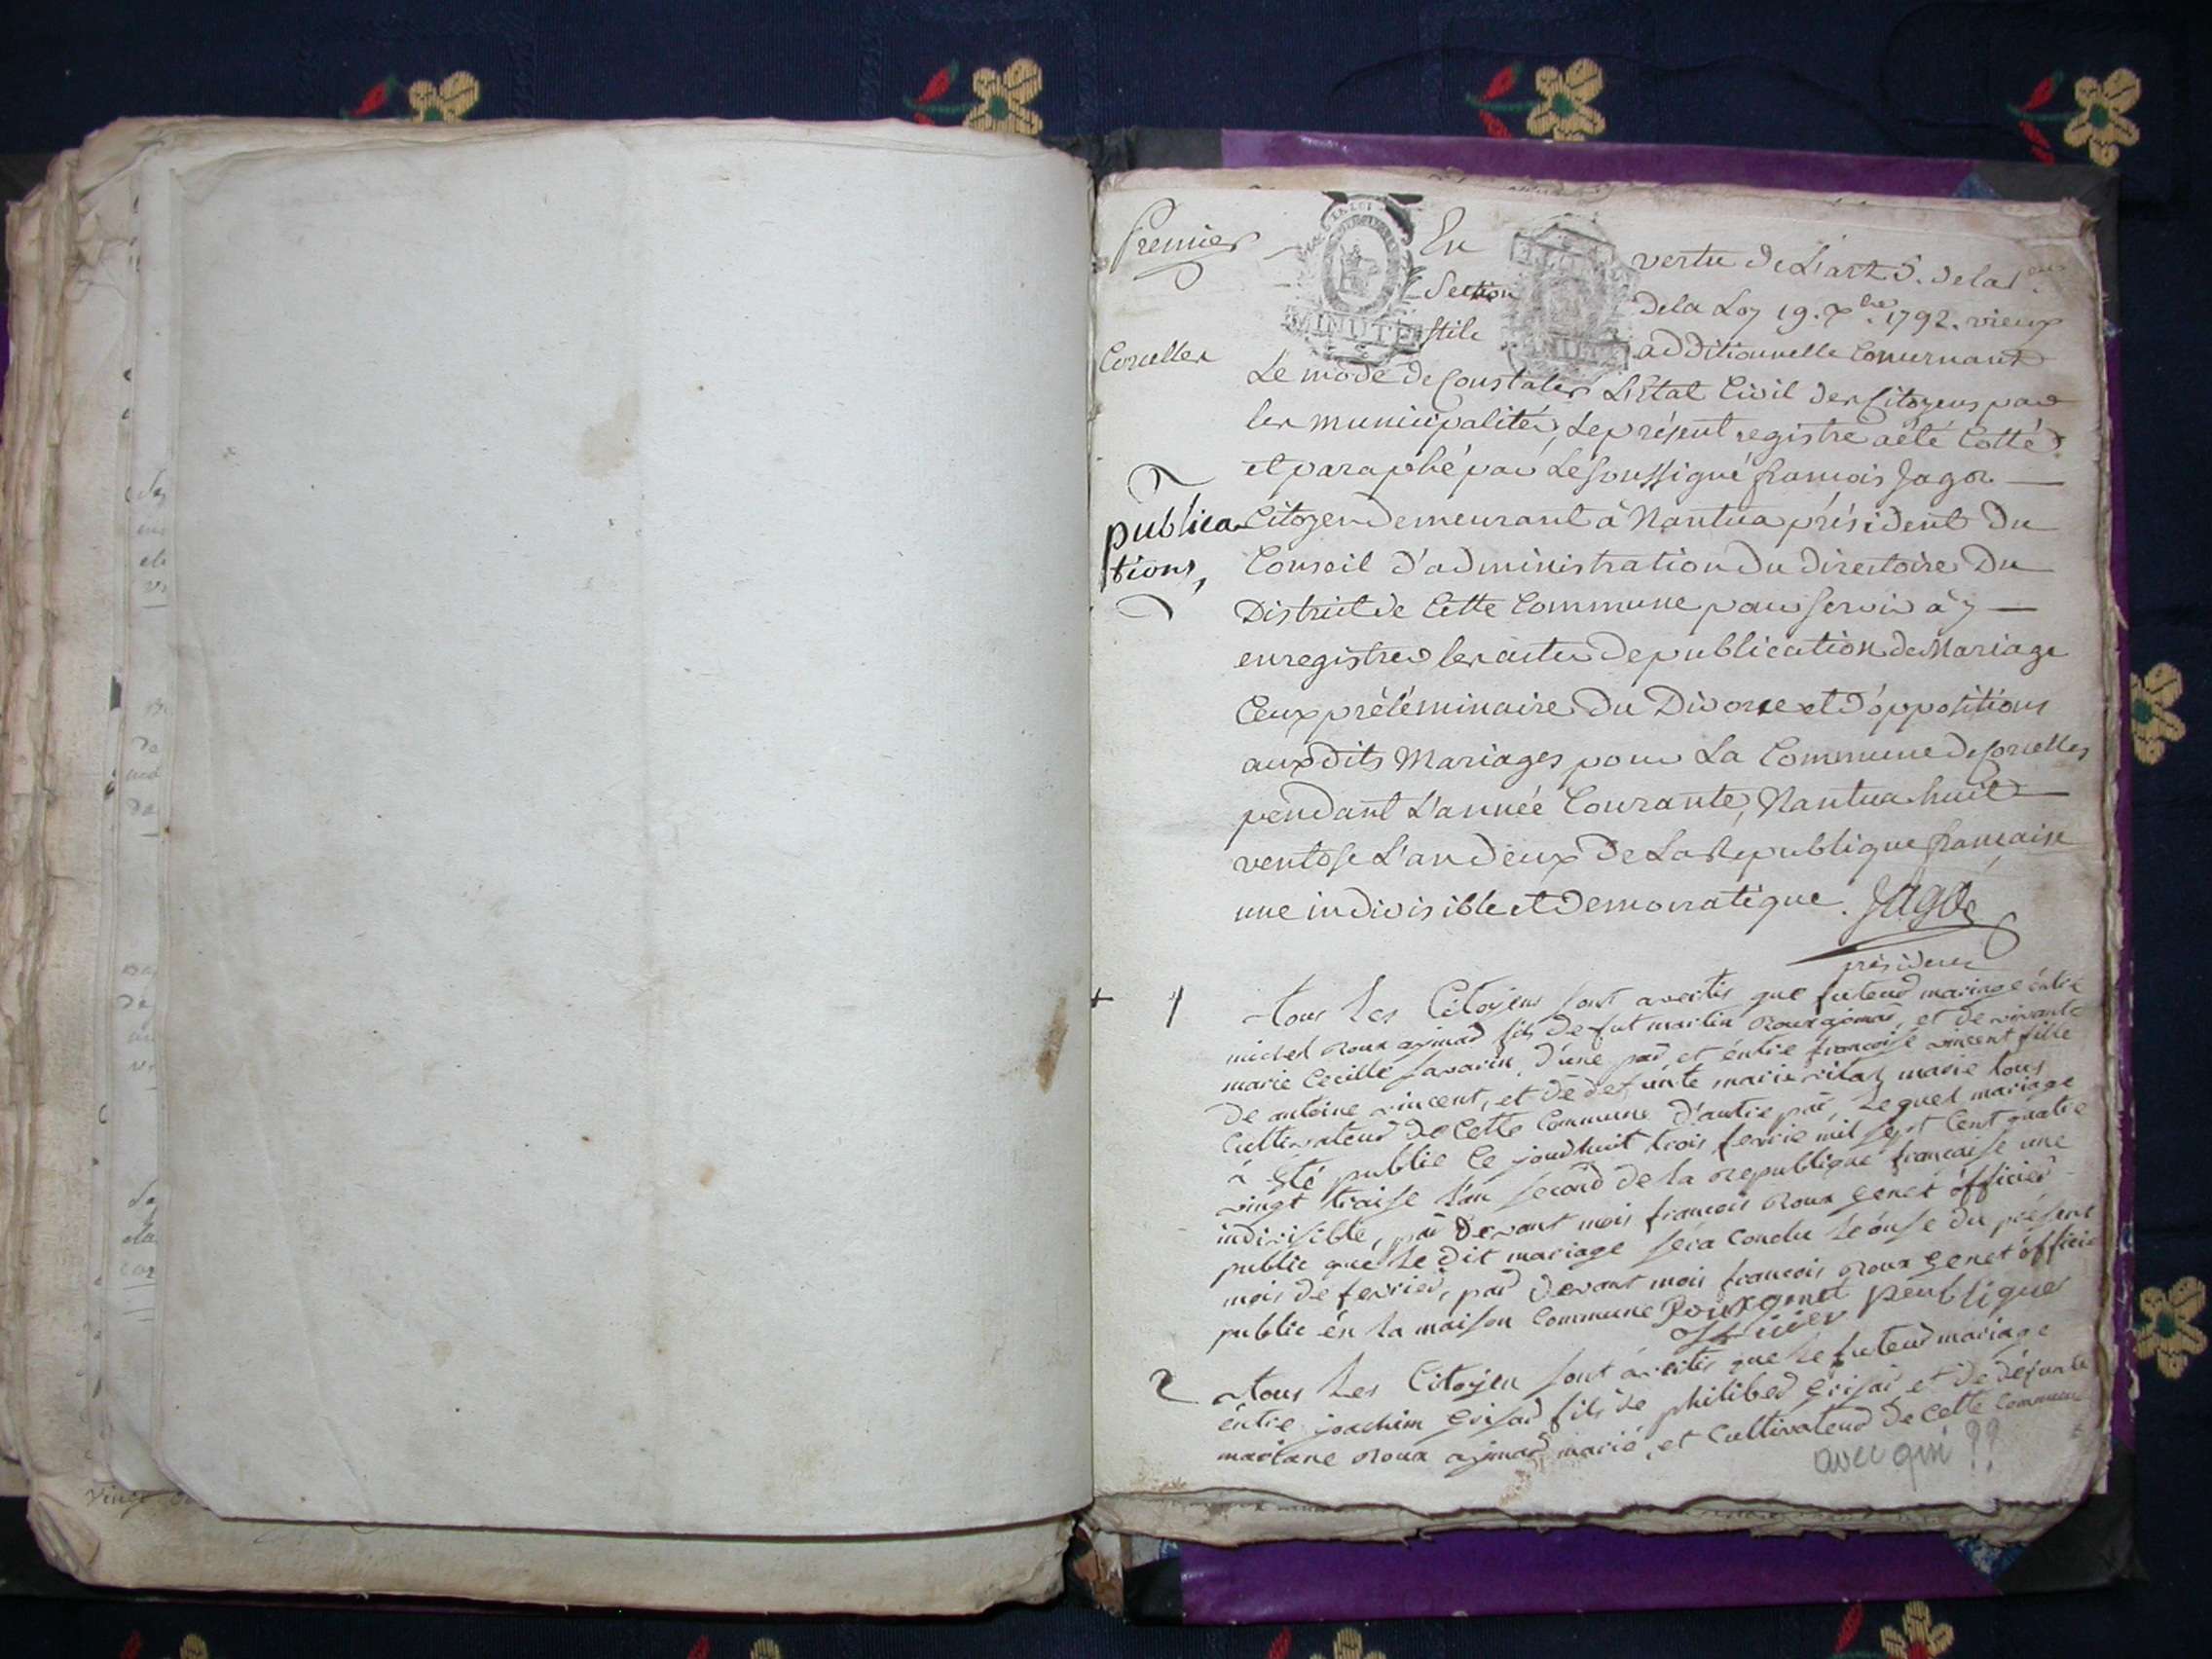 premier
En vertu de L'art 5. de la 1.
Section de la Loy 19. 7bre. 1792. vieux
stile additionnelle Concernant
Corcelles
Le mode de Constater L'Etat Civil des Citoyens par
les municipalités, Le présent registre a été Cotté
et paraphé par Le Soussigné françois Jagot
publica
tions,
Citoyen demeurant à Nantua président du
Conseil d'administration du directoire du
District de Cette Commune pour servir à y
enregistrer les actes de publication de Mariage
Ceux préléminaire du Divorce et d'oppositions
aux dits Mariages pour La Commune de Corcelles
pendant L'année Courante, Nantua huit
ventose L'an deux de La Republique française
une indivisible et democratique. Jagot
président
+ 1 tous les Citoyens sont avertis que futeur mariage éntre
michel Roux aymard fils de fut martin Roux aymar et de vivante
marie Cecille Savarin, d'une par et éntre françoise vincent fille
De antoine vincent, et de défunte marie vitaz marie tous
Cultivateur de Cette Commune d'autre par, Le quel mariage
à Eté publie Ce jourdhuit trois fevrie mil sept Cent quatre
vingt traise l'an second de la republique française une
indivisible, par devant mois françois Roux genet officier
public que Le dit mariage sera Conclu Le onse du présent
mois de fevrier, par devant mois françois Roux genet officie
public én la maison Commune Rouxgenet
officier peubligue
2 tous Les Citoyen sont avertis que Le futeur mariage
éntre joachim grisard fils de philiber grisar et de défunte
mariane Roux aymar marié, et Cultivateur de Cette Commune
avec qui ??
MINUTE
LA LOI